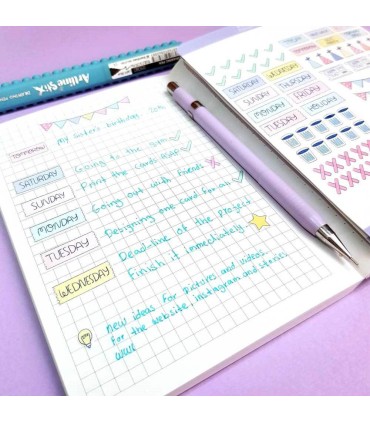 Artline Stix
TOMORROW
My sister's birthday
SATURDAY
Going to the gym
SUNDAY
Print the cards
MONDAY
Going out with friends
TUESDAY
Designing one card for
Dead-line of the project
WEDNESDAY
Finish it immediately
new ideas for pictures and videos
for the website, instagram and stories
SATURDAY
WEDNESDAY
SUNDAY
THURSDAY
MONDAY
FRIDAY
TUESDAY
MONDAY